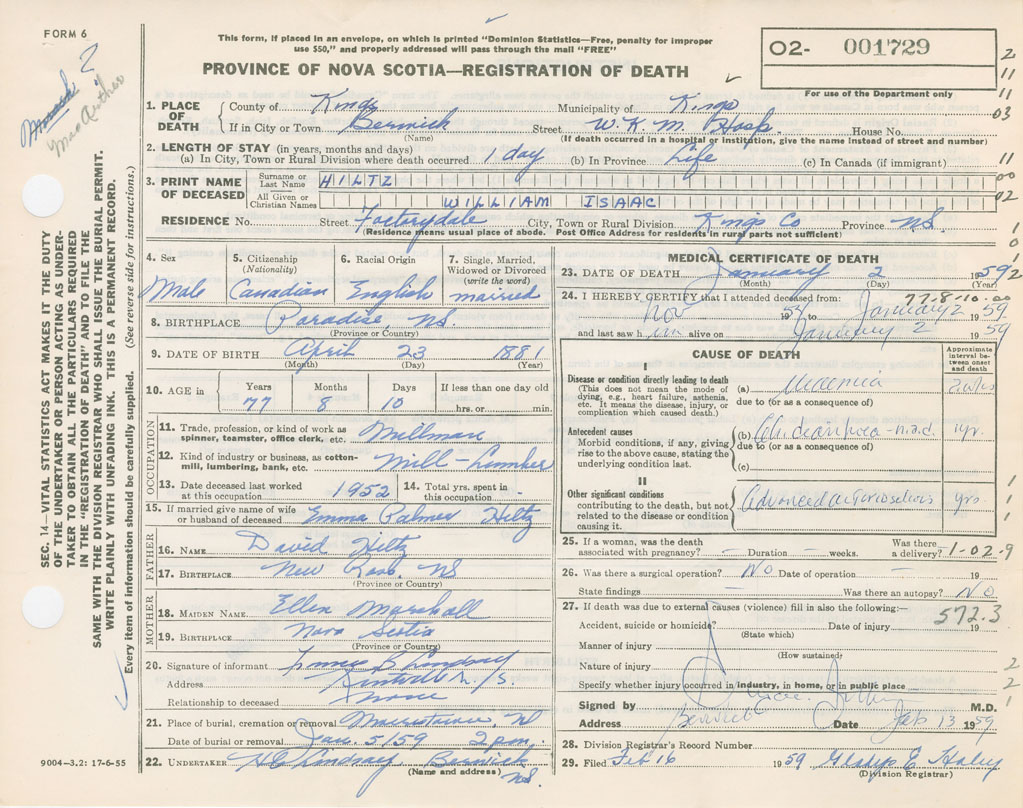 FORM 6
This form, if placed in an envelope, on which is printed "Dominion Statistics—Free, penalty for improper
use $50," and properly addressed will pass through the mail "FREE"
PROVINCE OF NOVA SCOTIA—REGISTRATION OF DEATH
O2- 001729
For use of the Department only
SEC. 14—VITAL STATISTICS ACT MAKES IT THE DUTY
OF THE UNDERTAKER OR PERSON ACTING AS UNDER-
TAKER TO OBTAIN ALL THE PARTICULARS REQUIRED
IN THE "REGISTRATION OF DEATH" AND FILE THE
SAME WITH THE DIVISION REGISTRAR WHO SHALL ISSUE THE BURIAL PERMIT.
WRITE PLAINLY WITH UNFADING INK. THIS IS A PERMANENT RECORD.
Every item of information should be carefully supplied. (See reverse side for instructions.)
1. PLACE OF DEATH
County of Kings Municipality of Kings
If in City or Town Berwick Street W.K.M. Hosp. House No.
(Name) (If death occurred in a hospital or institution, give the name instead of street and number)
2. LENGTH OF STAY (in years, months and days)
(a) In City, Town or Rural Division where death occurred 1 day (b) In Province Life (c) In Canada (if immigrant)
3. PRINT NAME OF DECEASED
Surname or Last Name HILTZ
All Given or Christian Names WILLIAM ISAAC
RESIDENCE No. Street Factorydale City, Town or Rural Division Kings Co Province N.S.
(Residence means usual place of abode. Post Office Address for residents in rural parts not sufficient)
4. Sex
Male
5. Citizenship
(Nationality)
Canadian
6. Racial Origin
English
7. Single, Married, Widowed or Divorced
(write the word)
married
8. BIRTHPLACE Paradise, N.S.
(Province or Country)
9. DATE OF BIRTH April 23 1881
(Month) (Day) (Year)
10. AGE in Years Months Days If less than one day old
77 8 10 hrs. or min.
OCCUPATION
11. Trade, profession, or kind of work as
spinner, teamster, office clerk, etc. Millman
12. Kind of industry or business, as cotton-
mill, lumbering, bank, etc. Mill - Lumber
13. Date deceased last worked at this occupation 1952
14. Total yrs. spent in this occupation
15. If married give name of wife
or husband of deceased Emma Palmer Hiltz
FATHER
16. NAME David Hiltz
17. BIRTHPLACE New Ross, N.S
(Province or Country)
MOTHER
18. MAIDEN NAME Ellen Marshall
19. BIRTHPLACE Nova Scotia
(Province or Country)
20. Signature of informant Lindsay
Address N.S.
Relationship to deceased None
21. Place of burial, cremation or removal Morristown, N
Date of burial or removal Jan. 5/59 2 pm.
22. UNDERTAKER H C Lindsay Berwick
(Name and address) N.S.
9004-3.2: 17-6-55
MEDICAL CERTIFICATE OF DEATH
23. DATE OF DEATH January 2 1959
(Month) (Day) (Year)
24. I HEREBY CERTIFY that I attended deceased from: 77-8-10-00
Nov 19 to January 2 1959
and last saw him alive on January 2 1959
CAUSE OF DEATH
Approximate interval between onset and death
I
Disease or condition directly leading to death
(This does not mean the mode of dying, e.g., heart failure, asthenia, etc. It means the disease, injury, or complication which caused death.)
(a) Uraemia
due to (or as a consequence of)
Antecedent causes
Morbid conditions, if any, giving rise to the above cause, stating the underlying condition last.
(b) n.a.d. 1yr.
due to (or as a consequence of)
(c)
II
Other significant conditions
contributing to the death, but not related to the disease or condition causing it.
Advanced arteriosclerosis yrs.
25. If a woman, was the death associated with pregnancy? — Duration — weeks. Was there a delivery? 1-02-9
26. Was there a surgical operation? No Date of operation — 19
State findings — Was there an autopsy? No
27. If death was due to external causes (violence) fill in also the following:—
572.3
Accident, suicide or homicide? Date of injury 19
(State which)
Manner of injury
(How sustained)
Nature of injury
Specify whether injury occurred in industry, in home, or in public place
Signed by M.D.
Address Berwick Date Feb 13 1959
28. Division Registrar's Record Number
29. Filed Feb 16 1959 Gladys E Haley
(Division Registrar)